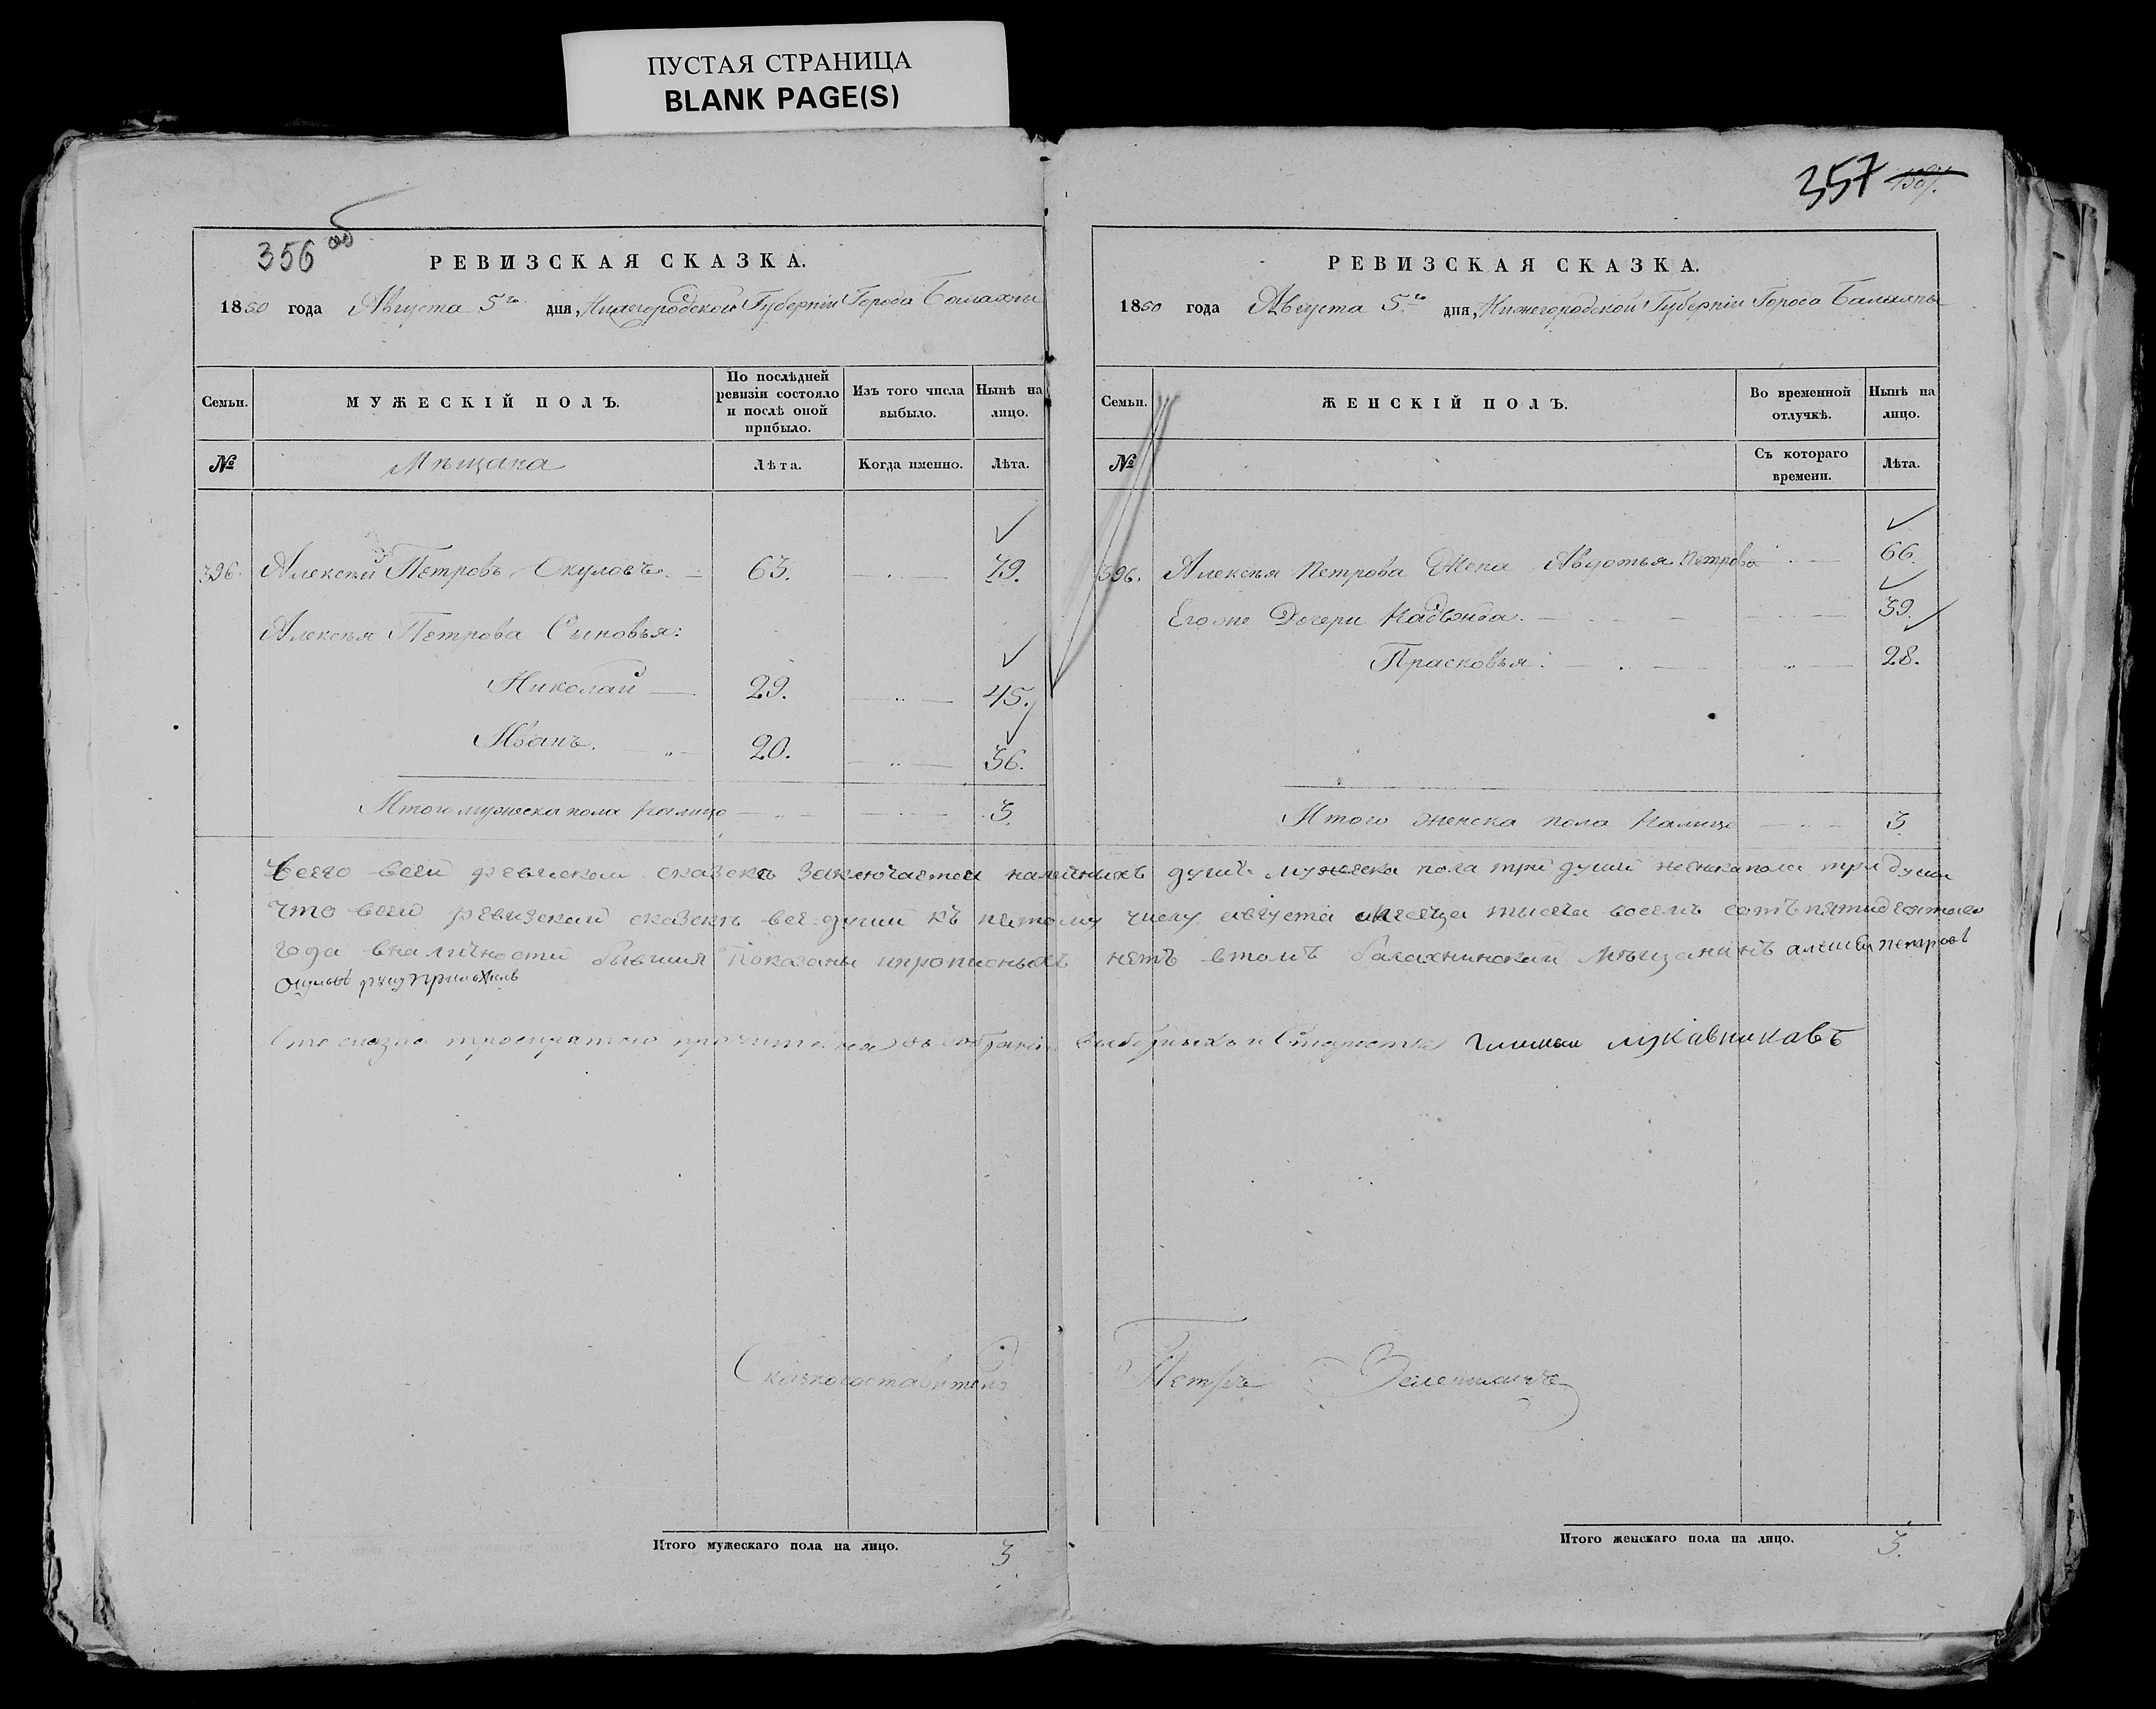 ПУСТАЯ СТРАНИЦА
BLANK PAGE(S)
356 об
РЕВИЗСКАЯ СКАЗКА.
1850 года Августа 5го дня, Нижегородской Губернии Города Балахны
Семьи. МУЖЕСКІЙ ПОЛЪ. По послѣдней ревизіи состояло и послѣ оной прибыло. Изъ того числа выбыло. Нынѣ на лицо.
№ Мѣщана Лѣта. Когда именно. Лѣта.
396. Алексѣй Петровъ Окуловъ. 63. 79.
Алексѣя Петрова Сыновья:
Николай 29. 45.
Иванъ. 20. 36.
Итого мужеска пола налицо 3.
357
РЕВИЗСКАЯ СКАЗКА.
1850 года Августа 5го дня, Нижегородской Губернии Города Балахны
Семьи. ЖЕНСКІЙ ПОЛЪ. Во временной отлучкѣ. Нынѣ на лицо.
№ Съ котораго времени. Лѣта.
396. Алексѣя Петрова Жена Авдотья Петрова 66.
Его же Дочери Надежда. 39.
Прасковья. 28.
Итого женска пола налицо 3
Всего всей ревиской сказкѣ заключается наличныхъ душъ мужеска пола три души женска пола три души
что всей ревизской сказкѣ все души къ пятому числу августа месеца тысеча восемь сотъ пятидесятаго
года вналичности бывшия показаны ипрописныхъ нетъ втомъ балахнинской мѣщанинъ алексей петровъ
окуловъ руку приложилъ
Сия сказка троекратно прочитана въ собрании выборныхъ и Староста лукавниковъ
Сказкосоставитель Петръ
Итого мужескаго пола на лицо. 3.
Итого женскаго пола на лицо. 3.